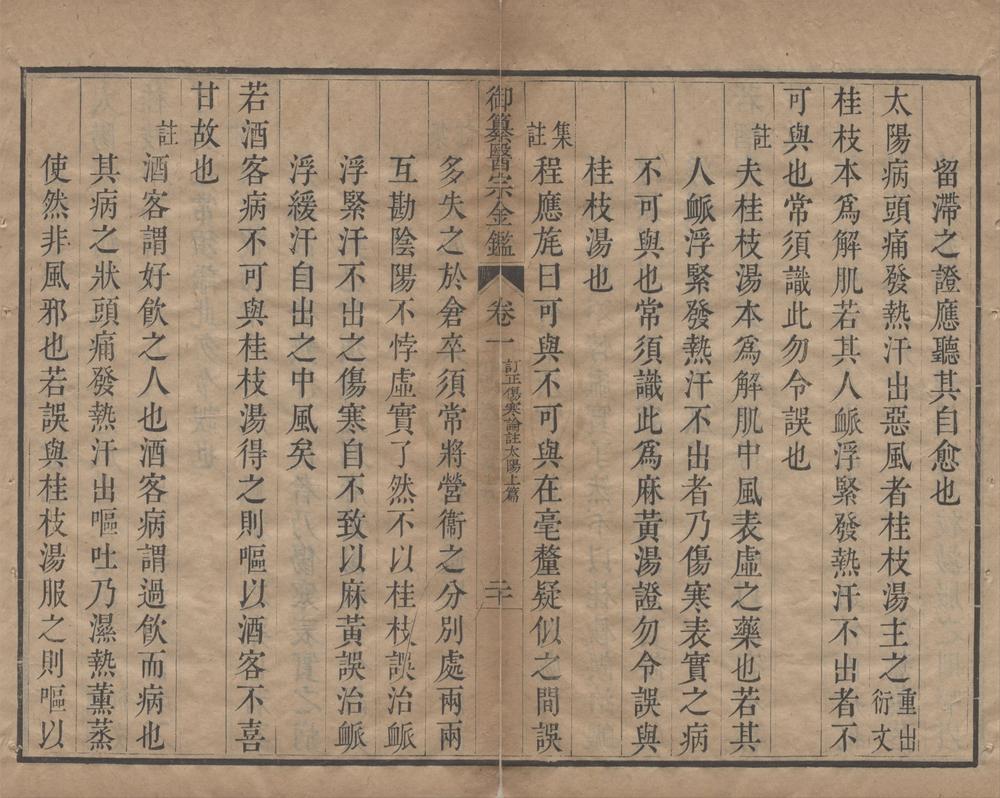 留滯之證應聽其自愈也
太陽病頭痛發熱汗出惡風者桂枝湯主之重出衍文
桂枝本爲解肌若其人脈浮緊發熱汗不出者不
可與也常須識此勿令誤也
註夫桂枝湯本爲解肌中風表虛之藥也若其
人脈浮緊發熱汗不出者乃傷寒表實之病
不可與也常須識此爲麻黃湯證勿令誤與
桂枝湯也
集註程應旄曰可與不可與在毫釐疑似之間誤
御纂醫宗金鑑 卷一 訂正傷寒論註太陽上篇 二十
多失之於倉卒須常將營衞之分別處兩兩
互勘陰陽不悖虛實了然不以桂枝誤治脈
浮緊汗不出之傷寒自不致以麻黃誤治脈
浮緩汗自出之中風矣
若酒客病不可與桂枝湯得之則嘔以酒客不喜
甘故也
註酒客謂好飮之人也酒客病謂過飮而病也
其病之狀頭痛發熱汗出嘔吐乃濕熱薰蒸
使然非風邪也若誤與桂枝湯服之則嘔以